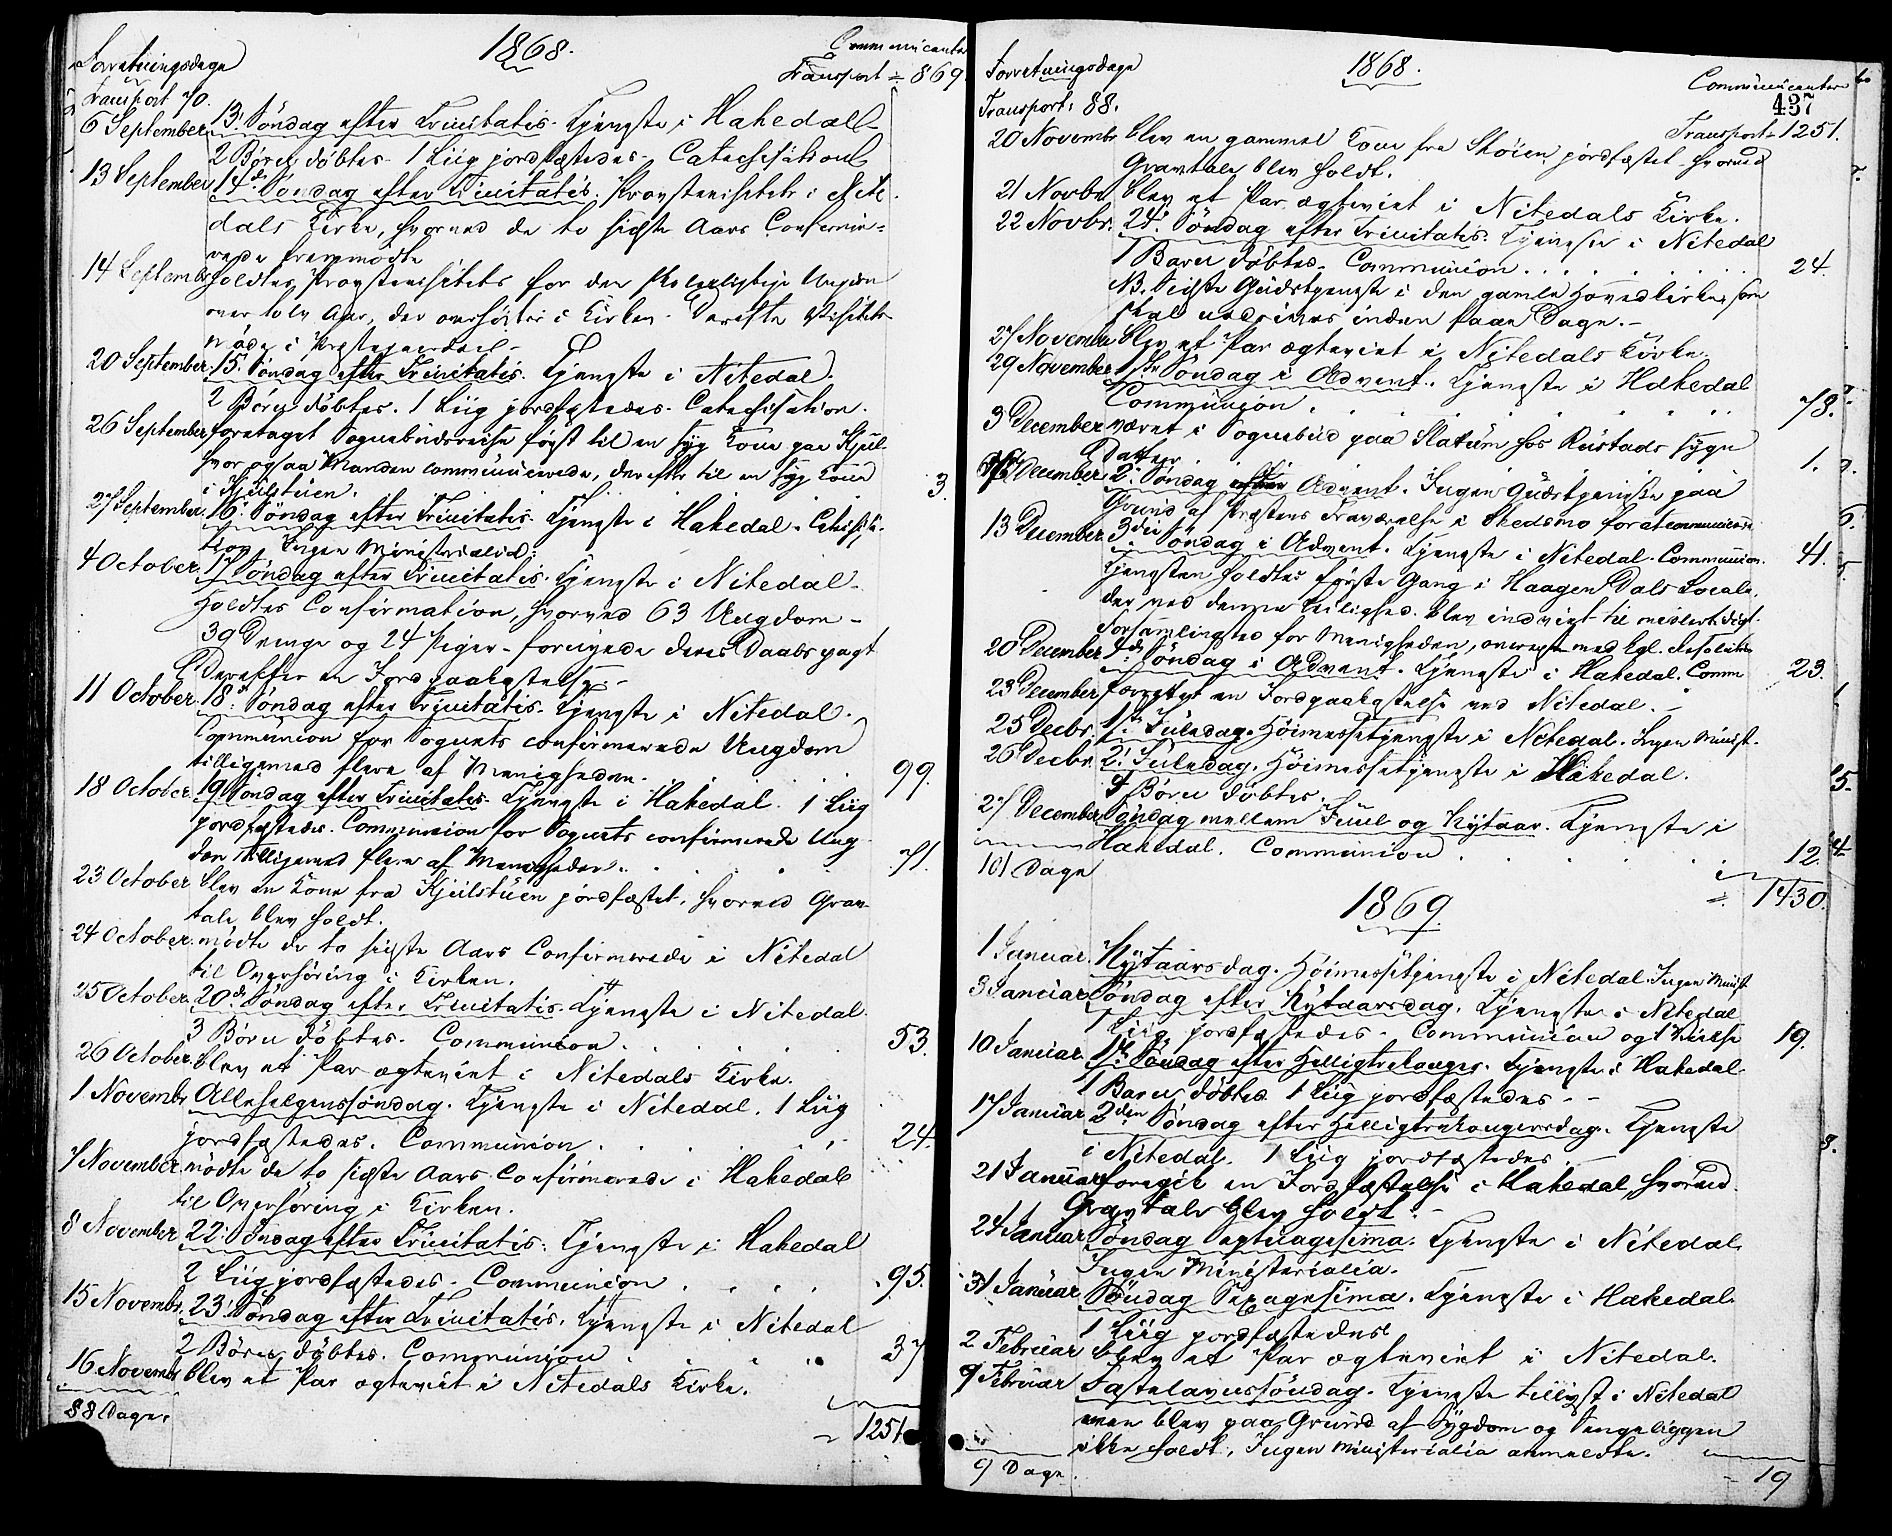 1868.
Forretningsdage
Communicanter
Transport 70.
Transport = 869
6 September 13. Søndag efter Trinitatis. Tjeneste i Hakedal
2 Børn døbtes. 1 Liig jordfæstedes. Catechisation
13 September 14de Søndag efter Trinitatis. Provstevisitats i Nite-
dals Kirke, hvorved de to sidste Aars Confirme-
rede fremmødte
14 Septembr holdtes Provstevisitats for den skolepligtige Ungdom
over tolv Aar, der overhørtes i Kirken. Derefter Visitats-
møde i Præstegaarden.
20 September 15. Søndag efter Trinitatis. Tjeneste i Nitedal.
2 Børn døbtes. 1 Liig jordfæstedes. Catechisation.
26 September foretaget Sognebudsreise først til en syg Kone paa Kjul-
hvor ogsaa Manden communicerede, derefter til en syg Kone
i Kjulstuen. 3.
27 September 16. Søndag efter Trinitatis. Tjeneste i Hakedal. Catechisa-
tion. Ingen Ministerialia.
4 October. 17 Søndag efter Trinitatis. Tjeneste i Nitedal.
Holdtes Confirmation, hvorved 63 Ungdom -
39 Drenge og 24 Piger - fornyede deres Daabspagt
Derefter en Jordpaakastelse.
11 October. 18. Søndag efter Trinitatis. Tjeneste i Nitedal.
Communion for Sognets confirmerede Ungdom
tilligemed flere af Menigheden. 99.
18 October 19 Søndag efter Trinitatis. Tjeneste i Hakedal. 1 Liig
jordfæstedes. Communion for Sognets confirmerede Ung
dom tilligemed flere af Menigheden. 71.
23 October blev en Kone fra Kjulstuen jordfæstet, hvorved Grav-
tale blev holdt.
24 October. mødte de to sidste Aars Confirmerede i Nitedal
til Overhøring i Kirken.
25 October 20de Søndag efter Trinitatis. Tjeneste i Nitedal.
3 Børn døbtes. Communion. 53.
26 October blev et Par ægteviet i Nitedals Kirke.
1 Novembr Allehelgenssøndag. Tjeneste i Nitedal. 1 Liig
jordfæstedes. Communion. 24.
7 November mødte de to sidste Aars Confirmerede i Hakedal
til Overhøring i Kirken.
8 November 22. Søndag efter Trinitatis. Tjeneste i Hakedal
2 Liig jordfæstedes. Communion. 95.
15 Novembr. 23. Søndag efter Trinitatis. Tjeneste i Nitedal
2 Børn døbtes. Communion. 37
16 Novembr blev et Par ægteviet i Nitedals Kirke.
88 Dage.
= 1251
1868.
Forretningsdage
Communicanter
437
Transport. 88.
Transport = 1251.
20 Novembr blev en gammel Kone fra Skøien jordfæstet hvorved
Gravtale blev holdt.
21 Novbr. blev et Par ægteviet i Nitedals Kirke.
22 Novbr. 24. Søndag efter Trinitatis. Tjeneste i Nitedal
1 Barn døbtes. Communion. 24.
NB. Sidste Gudstjeneste i den gamle Hovedkirke, som
skal nedrives inden faae Dage.-
27 Novembr blev et Par ægteviet i Nitedals Kirke.
29 November 1ste Søndag i Advent. Tjeneste i Hakedal
Communion 78.
3 December været i Sognebud paa Slatum hos Rustads syge
Datter. 1.
6 December 2. Søndag i Advent. Ingen Gudstjeneste paa
Grund af Præstens Fraværelse i Skedsmo for at communicere.
13 December 3die Søndag i Advent. Tjeneste i Nitedal. Communion. 41.
Tjenesten holdtes første Gang i Haagen Dals Locale,
der ved denne Leilighed blev indviet til midlertidigt
Forsamlingsted for Menigheden, overensst. med kgl. Resolution
20 December 4de Søndag i Advent. Tjeneste i Hakedal. Comm 23.
23 December forrettet en Jordpaakastelse ved Nitedal.-
25 Decbr. 1ste Juledag. Høimessetjeneste i Nitedal. Ingen Minist.
26 Decbr. 2. Juledag. Høimessetjeneste i Hakedal.
4 Børn døbtes.
27 December Søndag mellem Juul og Nytaar. Tjeneste i
Hakedal. Communion. 12.
101 Dage
= 1430.
1869.
1 Januar. Nytaarsdag. Høimessetjeneste i Nitedal. Ingen Minist.
3 Januar Søndag efter Nytaarsdag. Tjeneste i Nitedal
1 Liig jordfæstedes. Communion og 1 Vielse 19.
10 Januar. 1ste Søndag efter Helligtrekonger. Tjeneste i Hakedal.
1 Barn døbtes. 1 Liig jordfæstedes - -
17 Januar 2den Søndag efter Helligtrekongersdag. Tjeneste
i Nitedal. 1 Liig jordfæstedes.
21 Januar foregik en Jordfæstelse i Hakedal, hvorved
Gravtale blev holdt.-
24 Januar Søndag Septuagesima. Tjeneste i Nitedal.
Ingen Ministerialia.
31 Januar Søndag Sexagesima. Tjeneste i Hakedal.
1 Liig jordfæstedes
2 Februar blev et Par ægteviet i Nitedal.
7 Februar Fastelavnssøndag. Tjeneste tillyst i Nitedal
men blev paa Grund af Sygdom og Sengeliggen
ikke holdt. Ingen Ministerialia anmeldte.
9 Dage.
= 19